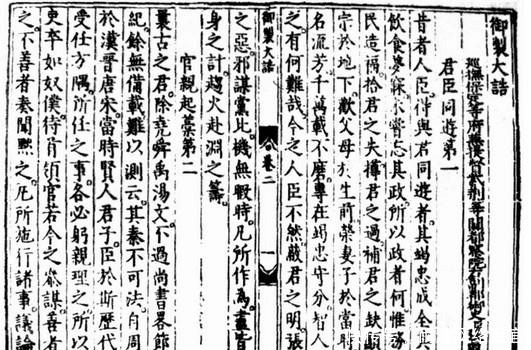 御製大誥
巡撫保定等府提督紫荊等關都察院右副都御史
君臣同遊第一
昔者人臣得與君同遊者其竭忠成全其
飲食夢寐未嘗忘其政所以政者何惟務
民造福拾君之失撙君之過補君之缺顯
宗於地下歡父母於生前榮妻子於當時
名流芳千萬載不磨專在竭忠守分智人
之有何難哉今之人臣不然蔽君之明張
御製大誥 卷二 一
之惡邪謀黨比機無暇時凡所作為盡皆
身之計趨火赴淵之籌
官親起藁第二
曩古之君除堯舜禹湯文不過尚書畧節
紀餘無備載難以測云其秦不可法自周
於漢晉唐宋當時賢人君子臣於斯歷代
受任方隅所任之事各必躬親理之所以
吏卒如奴僕待首領官若今之參謀善者
之不善者奏聞黜之凡所施行諸事議論